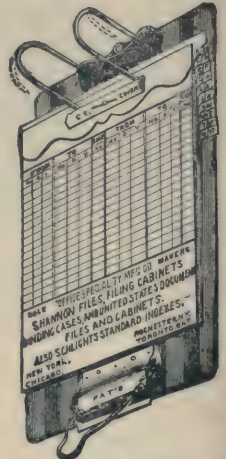 FROM TO BOX FROM TO
SOLE OFFICE SPECIALTY MFG CO MAKERS
SHANNON FILES, FILING CABINETS
BINDING CASES, AND UNITED STATES DOCUMENT
FILES AND CABINETS.
ALSO SCHLICHTS STANDARD INDEXES.
NEW YORK, ROCHESTER N.Y.
CHICAGO. TORONTO ONT
PAT'D